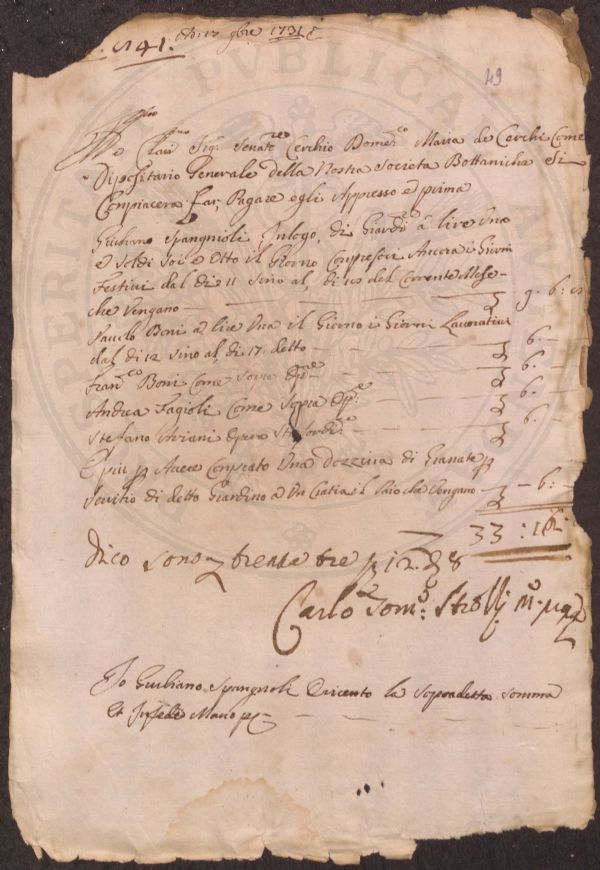 N. 41. A dì 17 9bre 1731
49
Ill.mo
e Clar.mo Sig.r Senat.re Cerchio Dome.co Maria de Cerchi Come
Dipositario Generale della Nostra Societa Bottanicha Si
Conpiacera far, Pagare egli Appresso e prima
Giuliano Spangnioli In logo, di Giard.o à lire Una
e Soldi Sei e Otto il Giorno Conpresovi Ancora i Giorni
Festivi dal dì 11 Sino al dì 17 del Corrente Mese
che Vengano — 9. 6:
Pauolo Boni a lire Una il Giorno i Giorni Lavorativi
dal dì 12 Sino al, di 17. detto — 6. —
Fran.co Boni Come Sopra — 6. —
Andrea Fagioli Come Sopra — 6. —
Stefano opera — 6. —
E piu p Avere Conprato Una Dozzina di Granate p
Servitio di detto Giardino a Un Cratia il Paio che Vengano — 6: —
33:
Dico Sono trenta tre p 12. 8
Carlo Tom.o Strozzi
Io Giuliano Spangnoli O ricento la Sopradetta Somma
Et In fede Mano p.a
PERITURA PUBLICA